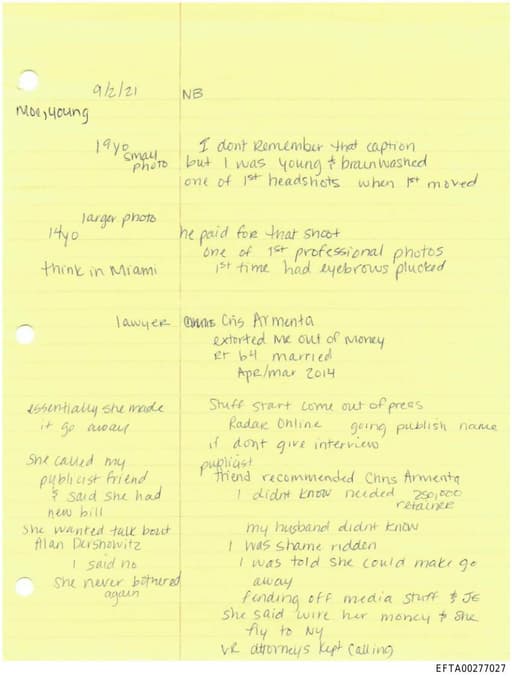 9/2/21 NB
Moe, young
19yo I dont Remember that caption
small photo but I was young & brainwashed
one of 1st headshots when 1st moved
larger photo
14yo he paid for that shoot
one of 1st professional photos
think in Miami 1st time had eyebrows plucked
lawyer Cris Armenta
extorted me out of money
Rt b4 married
Apr/mar 2014
essentially she made Stuff start come out of press
it go away Radar Online going publish name
if dont give interview
She called my publicist
publicist friend friend recommended Chris Armenta
& said she had I didnt know needed 250,000
new bill retainer
She wanted talk bout my husband didnt know
Alan Dershowitz I was shame ridden
I said no I was told she could make go
She never bothered away
again fending off media stuff & JE
She said wire her money & she
fly to NY
VR attorneys kept calling
EFTA00277027